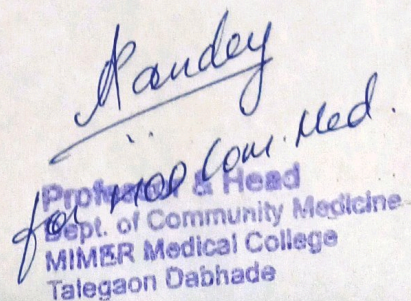 for HOD Com. Med.
Professor & Head
Dept. of Community Medicine
MIMER Medical College
Talegaon Dabhade